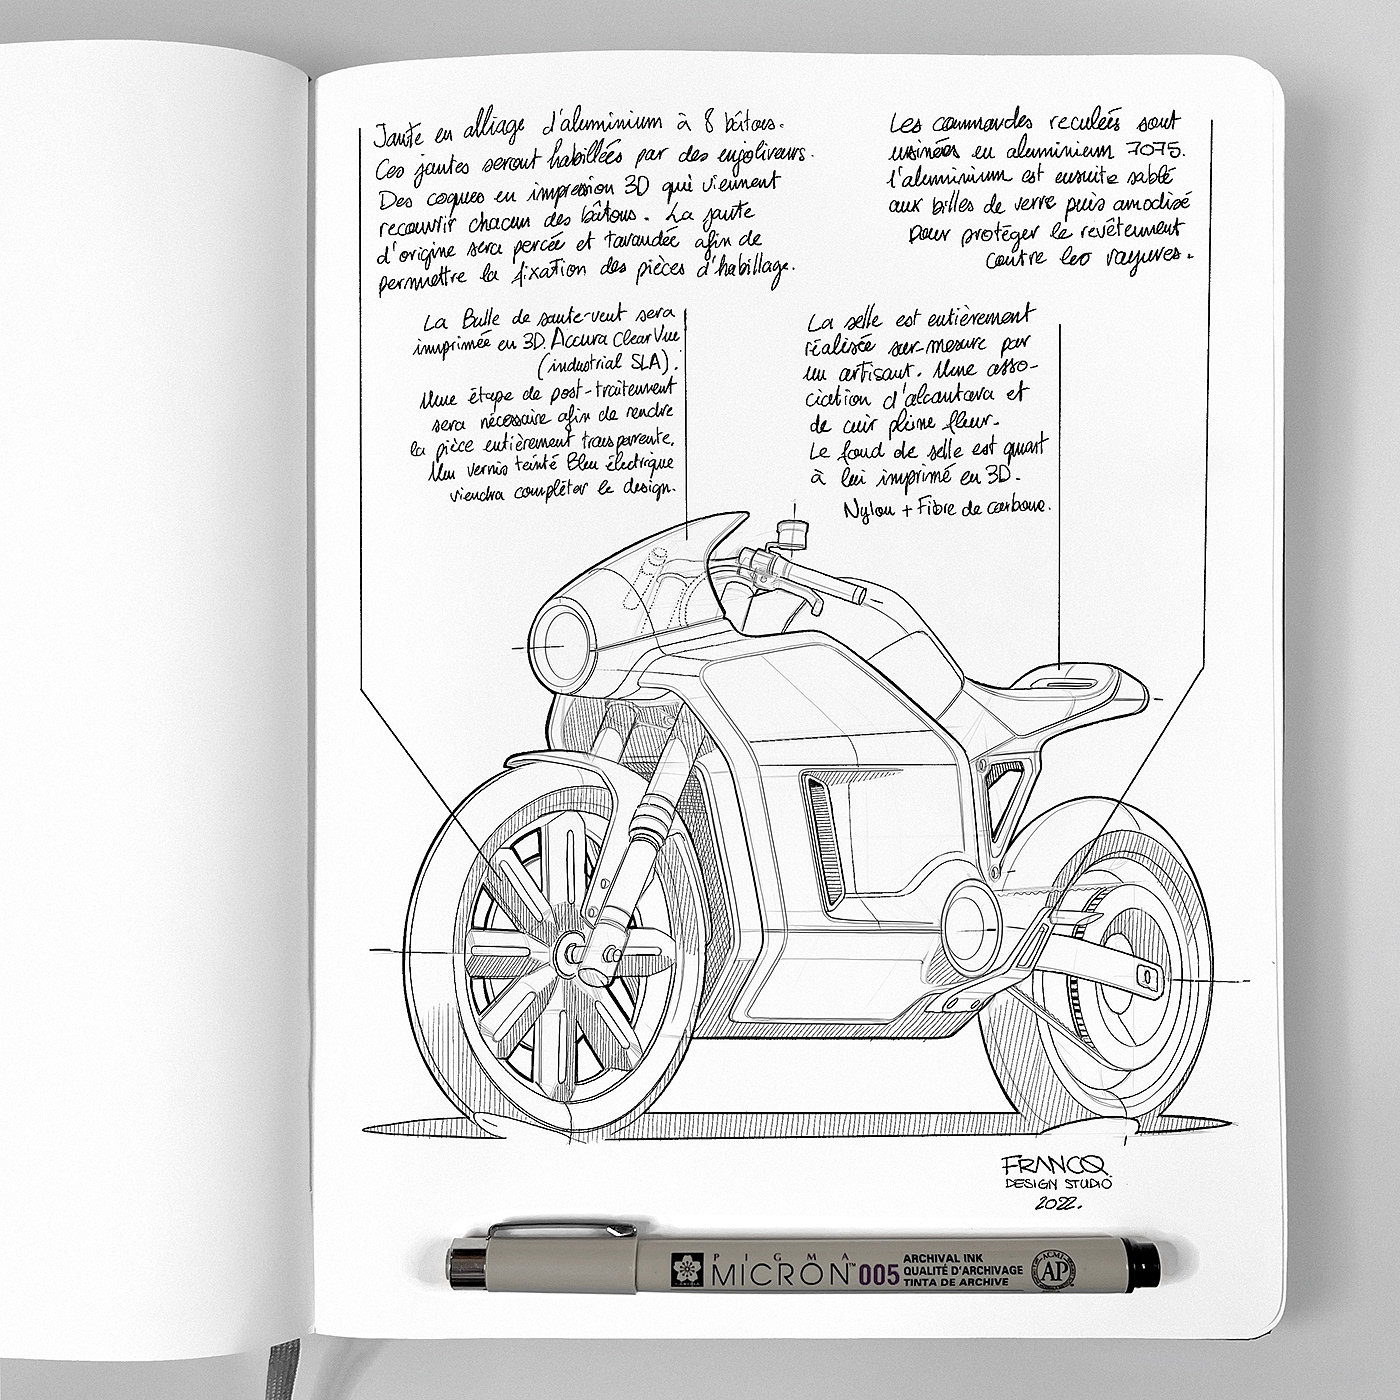 Jante en alliage d'aluminium à 8 bâtons.
Ces jantes seront habillées par des enjoliveurs.
Des coques en impression 3D qui viennent
recouvrir chacun des bâtons. La jante
d'origine sera percée et taraudée afin de
permettre la fixation des pièces d'habillage.
Les commandes reculées sont
usinées en aluminium 7075.
l'aluminium est ensuite sablé
aux billes de verre puis anodisé
pour protéger le revêtement
contre les rayures.
La Bulle de saute-vent sera
imprimée en 3D. Accura ClearVue
(industrial SLA).
Une étape de post-traitement
sera nécessaire afin de rendre
la pièce entièrement transparente.
Un vernis teinté Bleu électrique
viendra compléter le design.
La selle est entièrement
réalisée sur-mesure par
un artisant. Une asso-
ciation d'alcantara et
de cuir pleine fleur.
Le fond de selle est quant
à lui imprimé en 3D.
Nylon + Fibre de carbone.
FRANCQ
DESIGN STUDIO
2022.
PIGMA
MICRON™ 005
ARCHIVAL INK
QUALITÉ D'ARCHIVAGE
TINTA DE ARCHIVE
ACMI
AP